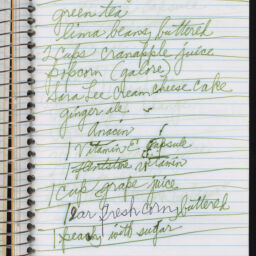 green tea
lima beans, buttered
2 cups cranapple juice
popcorn (galore)
Sara Lee creamcheese cake
ginger ale
Anacin
1 Vitamin E. capsule
1 Flintstone vitamin
1 Cup grape juice
1 ear fresh corn, buttered
1 peach, with sugar